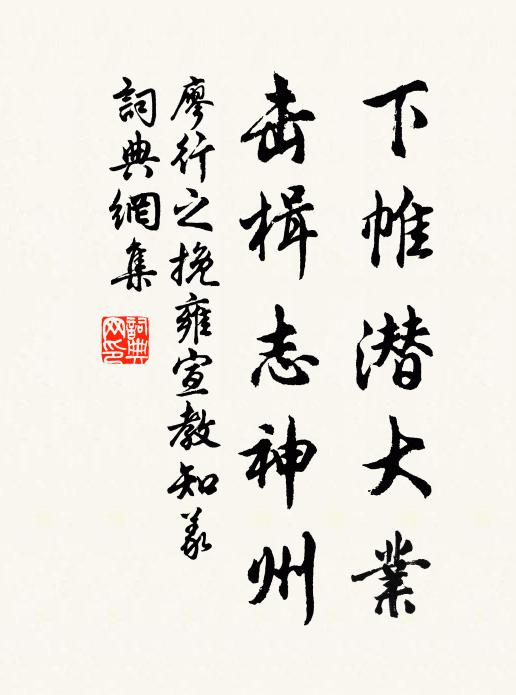 下帷潜大業
击楫志神州
廖行之挽雍宣教知義
詞典網集
詞典網印